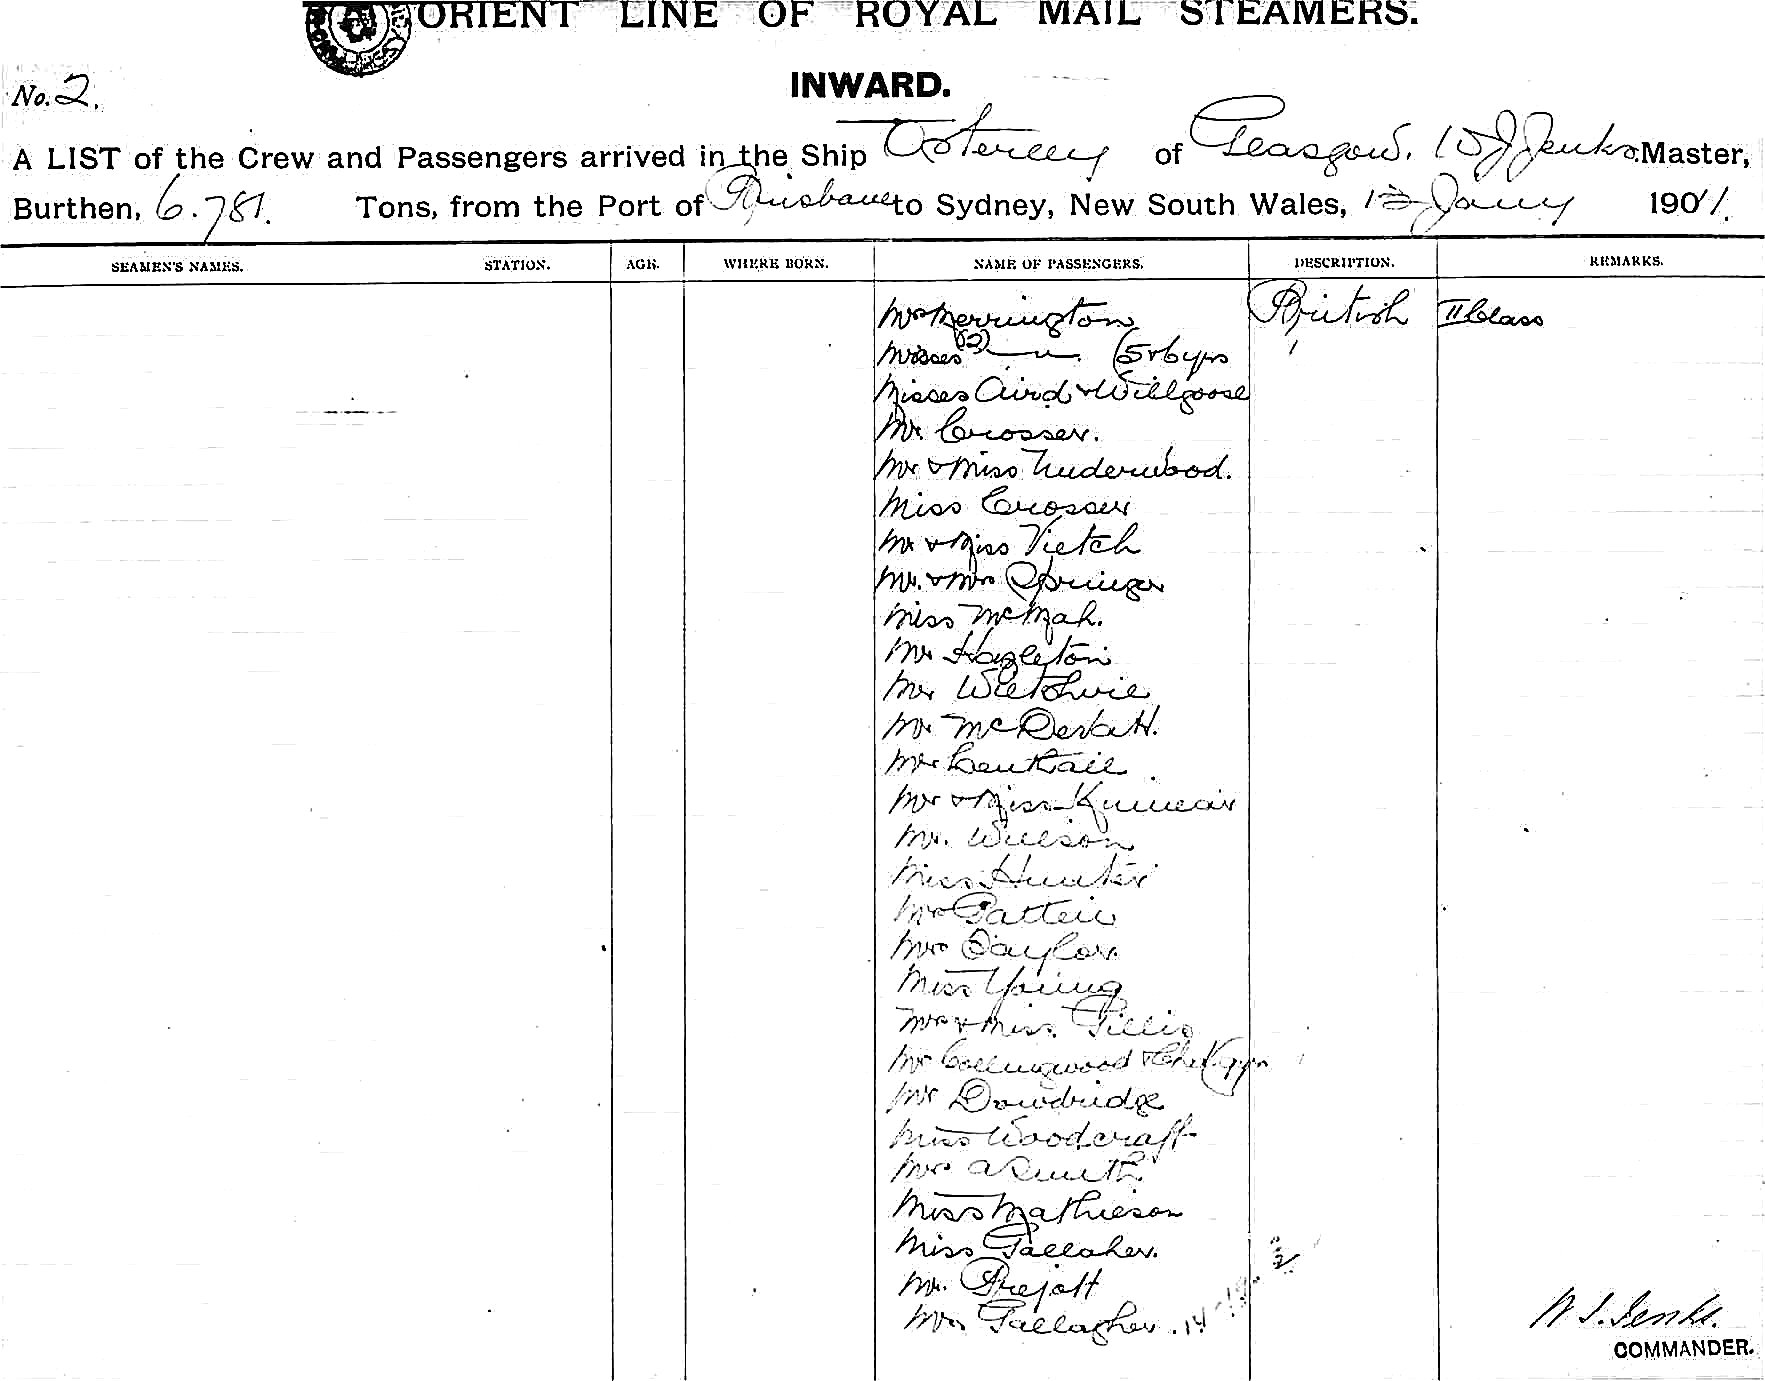 ORIENT LINE OF ROYAL MAIL STEAMERS.
No. 2.
INWARD.
A LIST of the Crew and Passengers arrived in the Ship Osterley of Glasgow. W J Jenks Master,
Burthen, 6.781. Tons, from the Port of Brisbane to Sydney, New South Wales, Jany 1901.
SEAMEN'S NAMES. STATION. AGE. WHERE BORN. NAME OF PASSENGERS. DESCRIPTION. REMARKS.
Mrs Merrington British II Class
Misses (2) — " — (5 & 6 yrs
Misses Aird & Willgoose
Mr. Crosser.
Mr & Miss Underwood.
Miss Crosser
Mr & Miss Vietch
Mr. & Mrs Springer
Miss
Mr Hazleton
Mr
Mr
Mr
Mr & Miss Kinnear
Mr. Willson
Miss Hunter
Mrs
Mrs Taylor
Miss Young
Mrs & Miss Gillis
Mr Collingwood &
Mr Dowdridge
Miss Woodcraft
Mrs A Smith
Miss Mathieson
Miss Gallaher.
Mr.
Mrs Gallagher. 14
W J. Jenks.
COMMANDER.